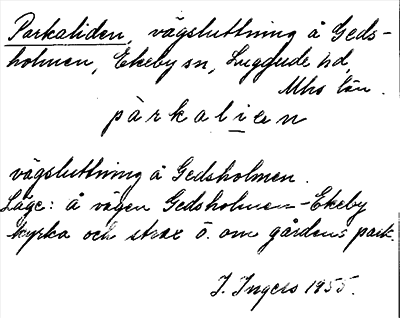 Parkaliden, vägsluttning å Geds-
holmen, Ekeby sn, Luggude hd,
Mhs län.
pàrkalien
vägsluttning å Gedsholmen.
Läge: å vägen Gedsholmen-Ekeby
kyrka och strax ö. om gårdens park.
I. Ingers 1955.